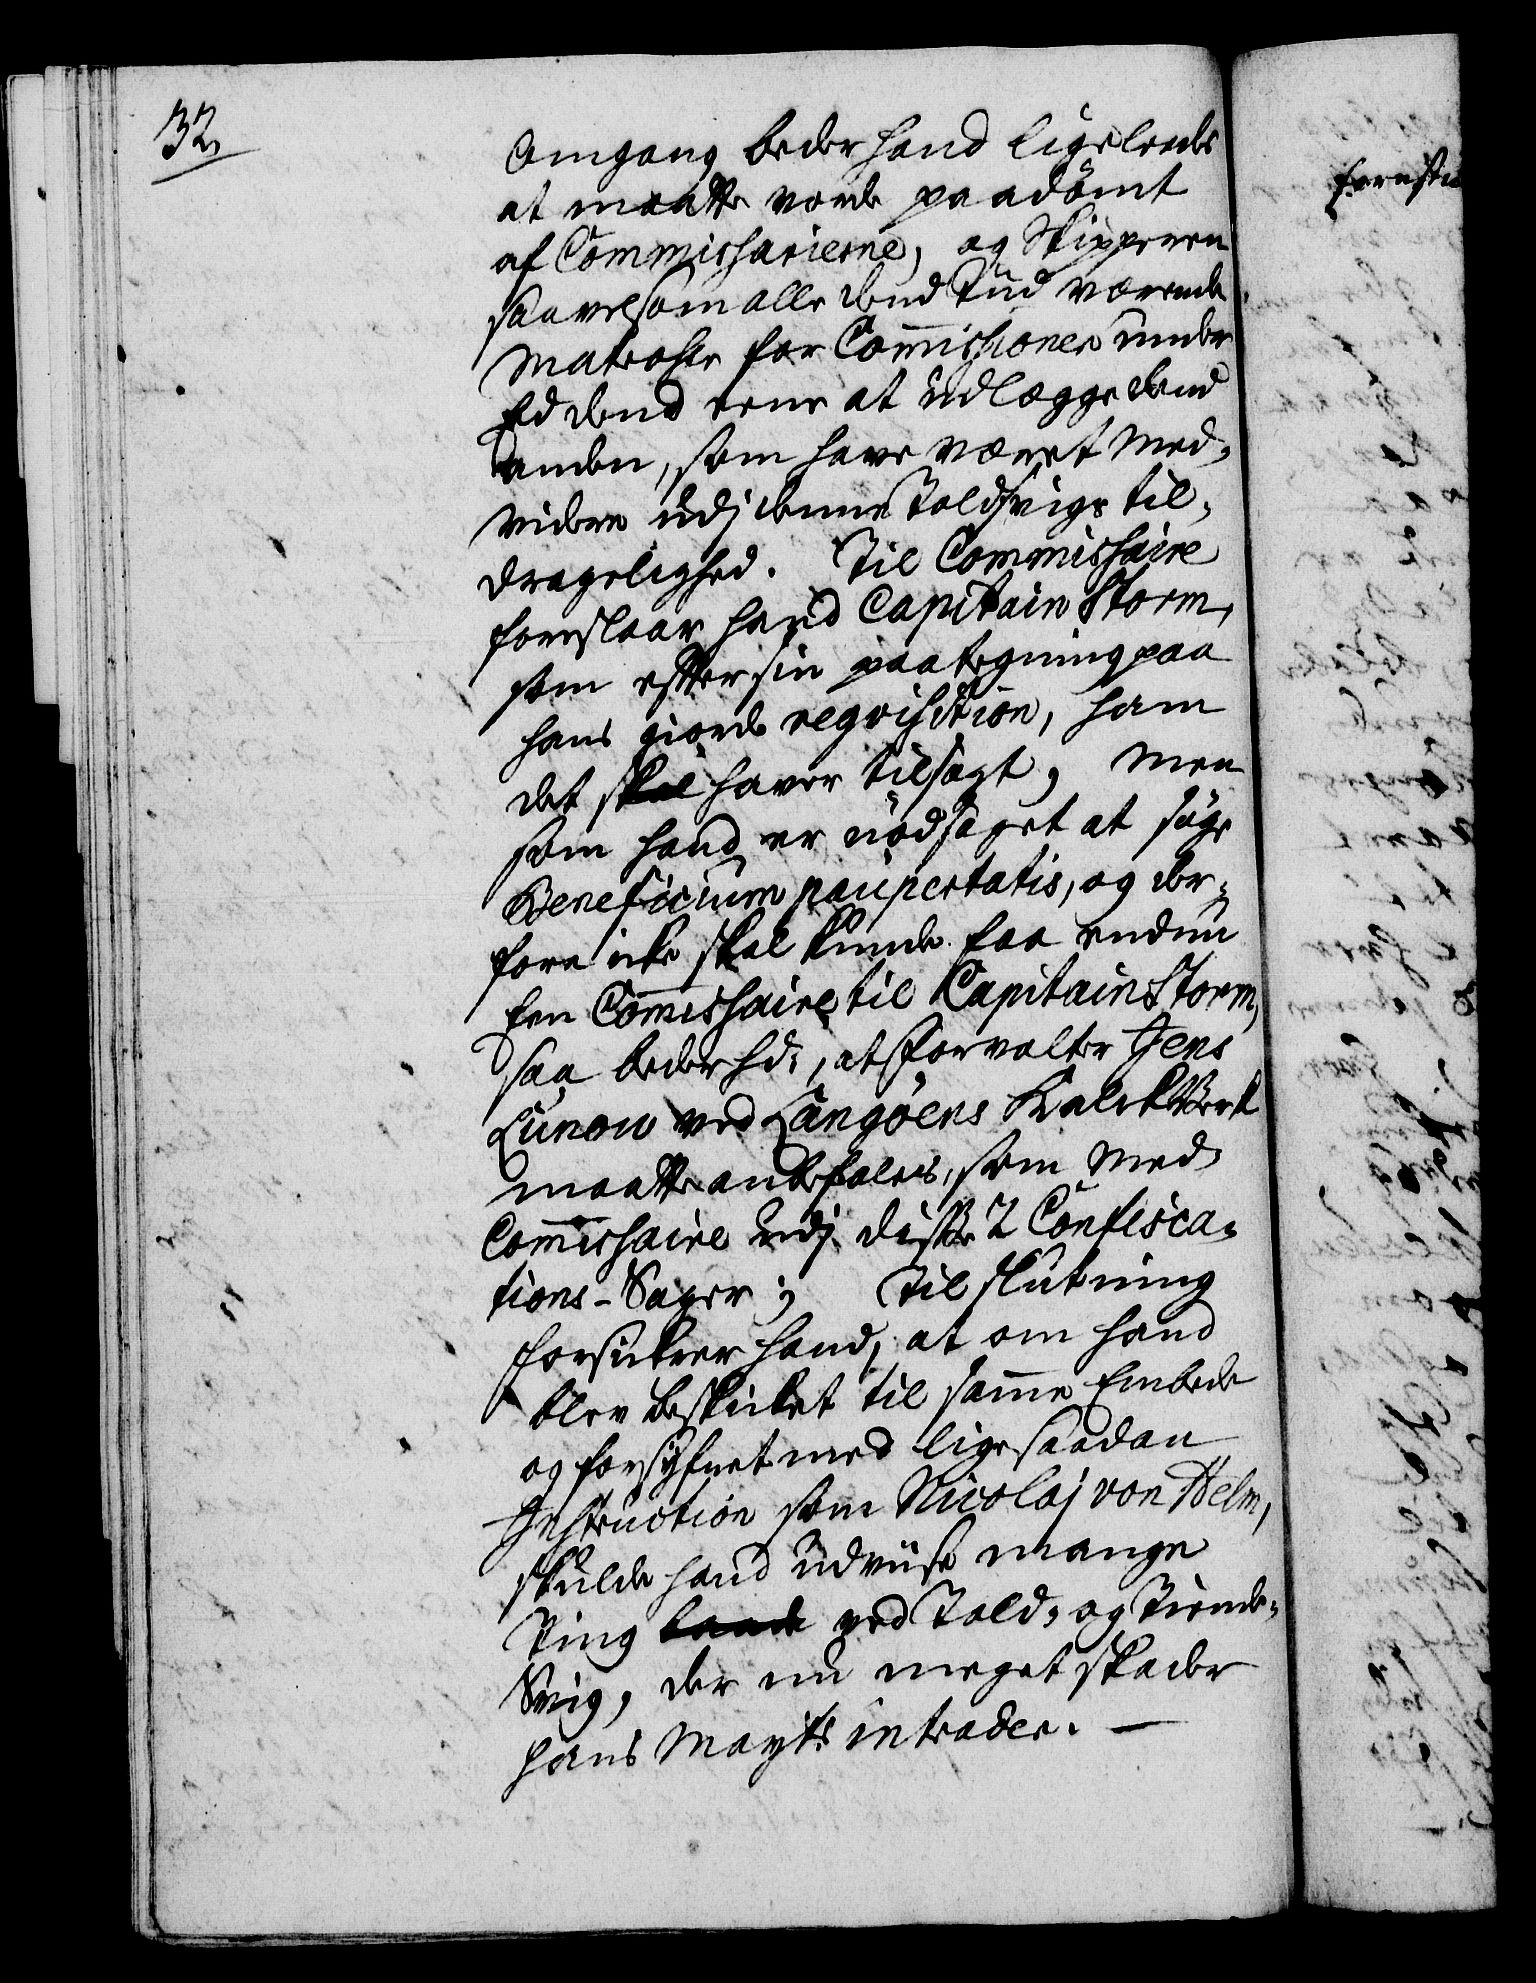 32.
omgang beder hand ligeleeds
at maatte vorde paadömt
af Commissarierne, og Skipperen
saavelsom alle dend Tiid værende
Matroser for Commissionen under
Ed dend eene at udlægge dend
anden, som have været Med-
videre udj denne Toldsvigs til-
dragelighed. Til Commissaire
foreslaar hand Capitain Storm,
som efter sin paategning paa
hans giorde reqvisition, ham
det skal haver tilsagt; Men
som hand er nödsaget at söge
Beneficium paupertatis, og der-
fore icke skal kunde faa endnu
Een Commissaire til Capitain Storm,
saa beder hd:, at Forvalter Jens
Lunow ved Langöens Kalckverk
maatte anbefales, som Med-
Commissaire udj disse 2 Confisca-
tions-Sager; Til slutning
forsikrer hand, at om hand
blev beskicket til samme Embede
og forsÿfnet med lige saadan
Instruction som Nicolaj von Helm,
skulde hand udviise mange
Ting baade ved Told- og Tiende-
Svig, der nu meget skader
hans Mayts intrader. —